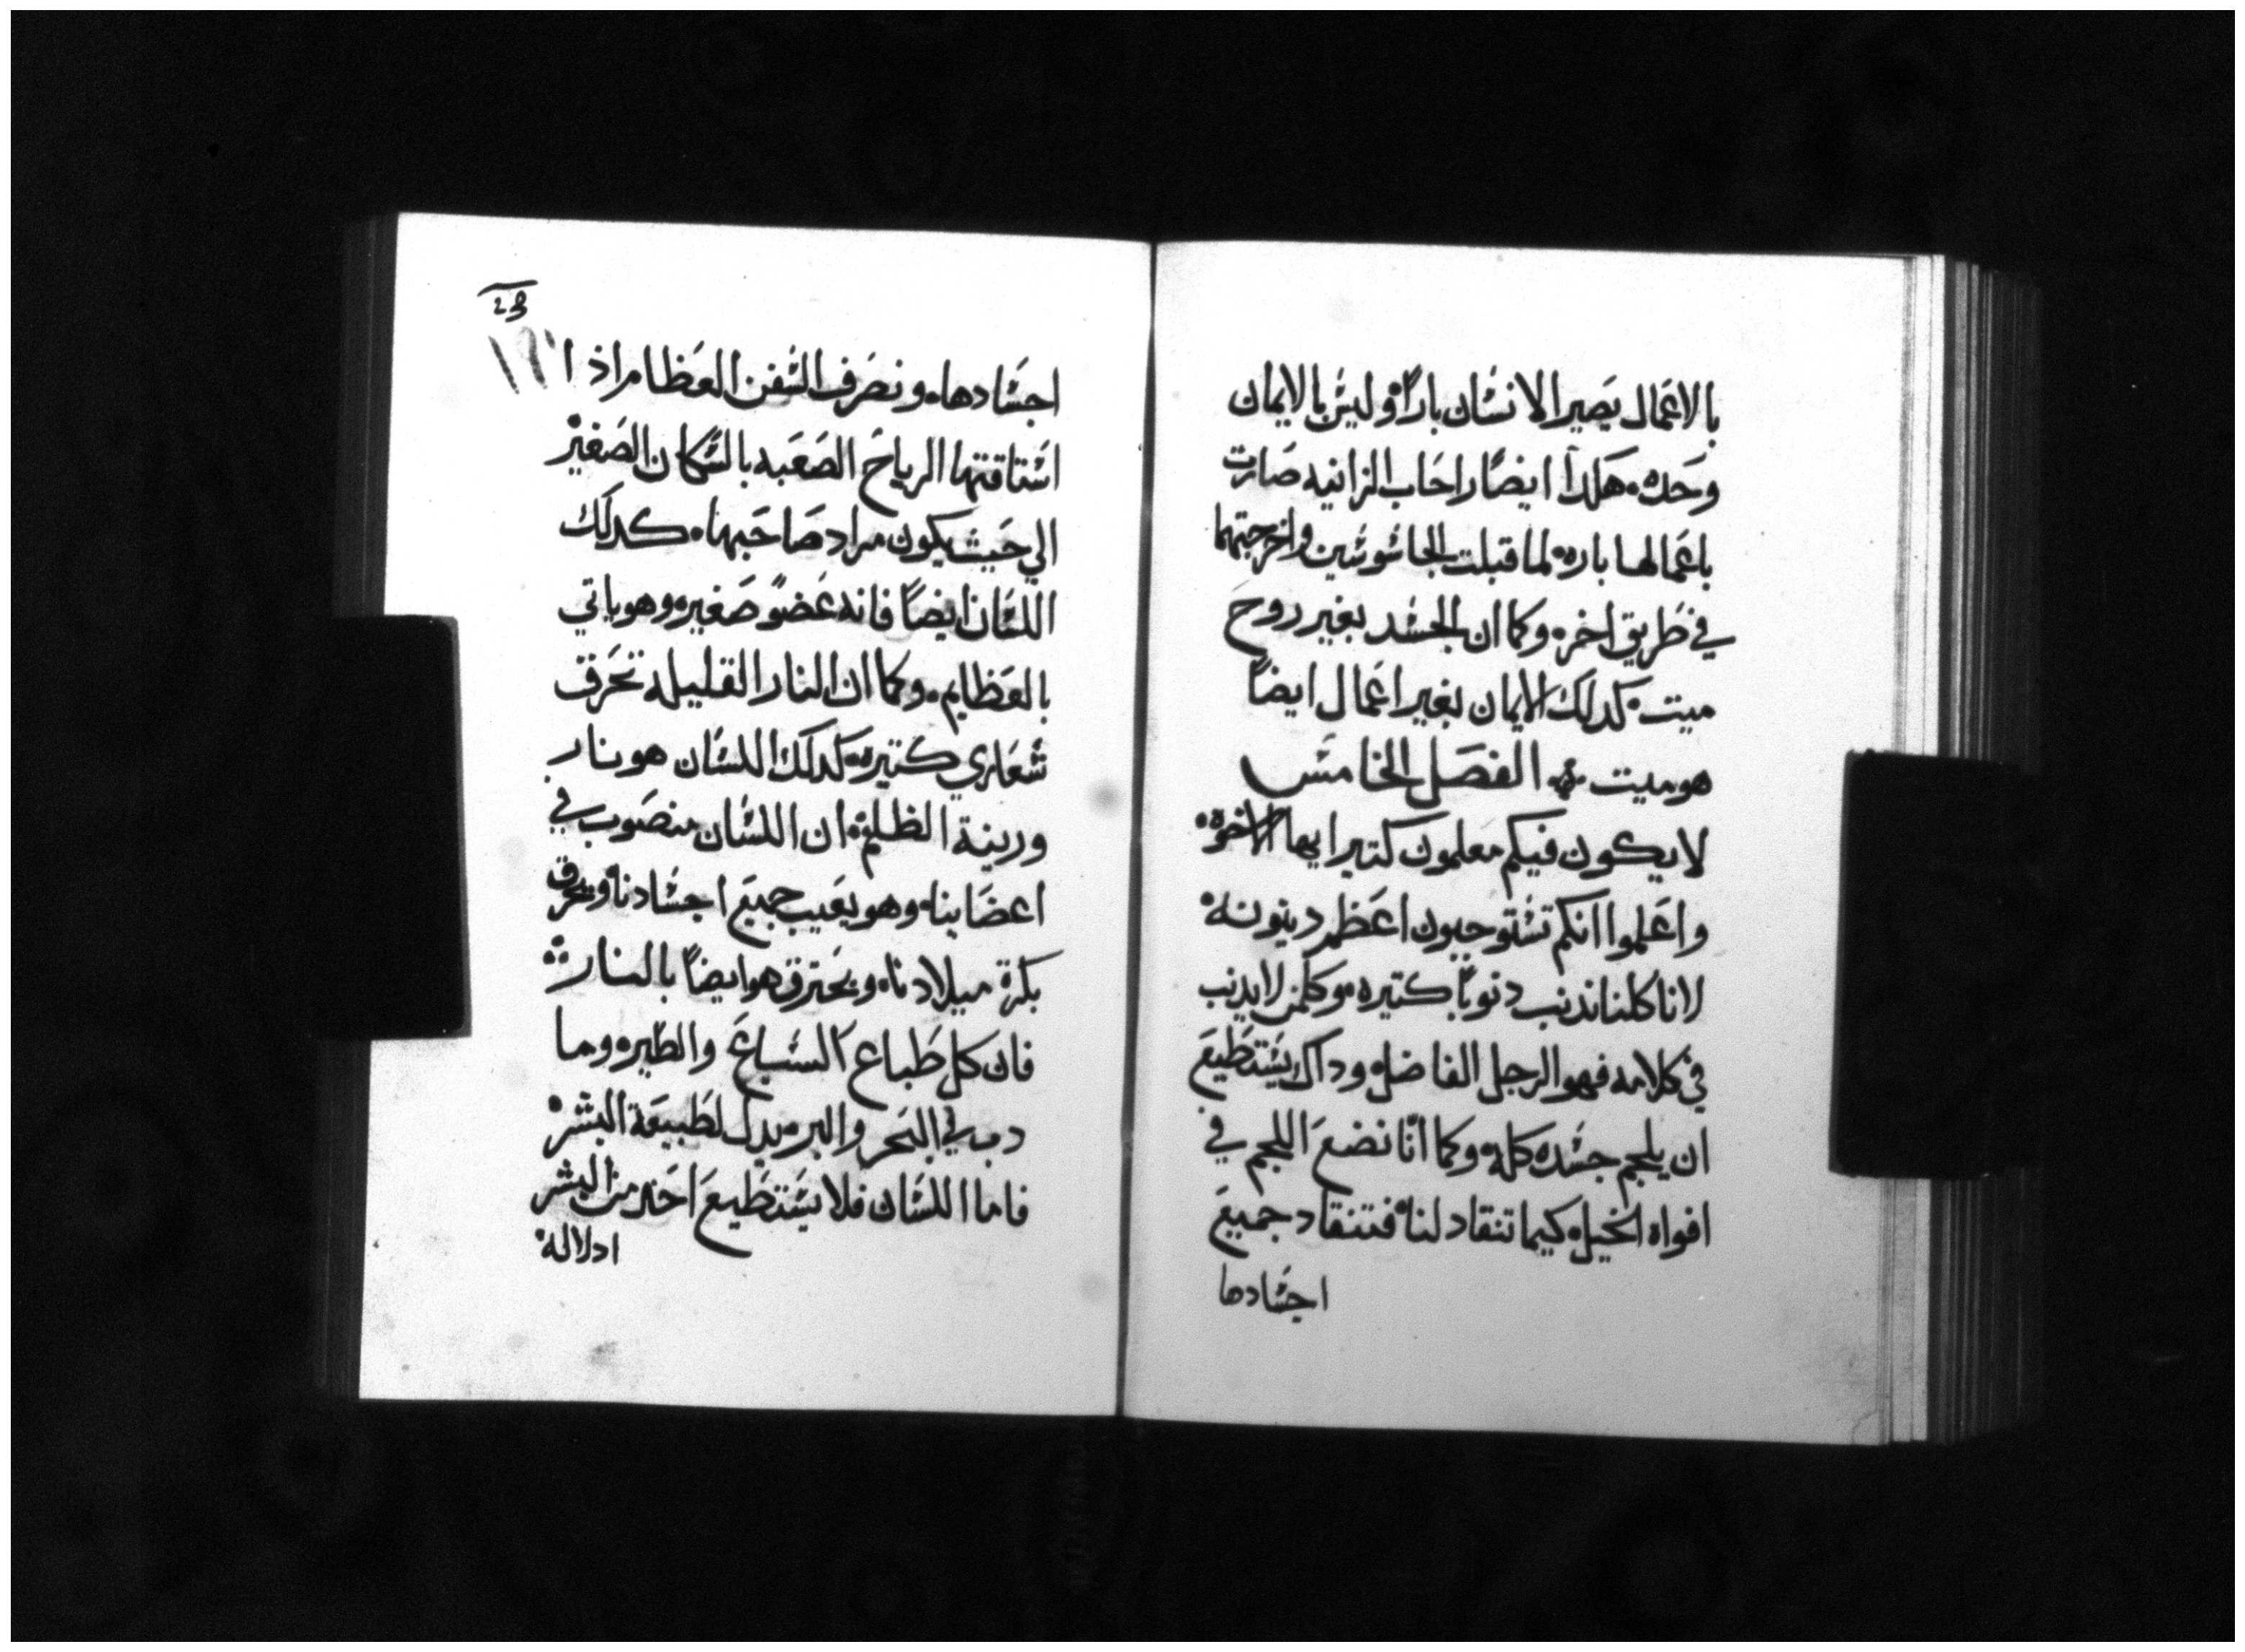 بالاعمال يصير الانسان باراً وليس بالايمان
وحده. هكدا ايضاً راحاب الزانيه صارت
باعمالها باره لما قبلت الجاسوسين واخرجتهما
في طريق اخره وكما ان الجسد بغير روح
ميت. كدلك الايمان بغير اعمال ايضاً
هو ميت الفصل الخامس
لا يكون فيكم معلمون كتيرا يها الاخوة.
واعلموا انكم تستوجبون اعظم دينونة
لانا كلنا ندنب دنوباً كتيره وكلمن لا يدنب
في كلامه فهو الرجل الفاضل وداك يستطيع
ان يلجم جسده كلة وكما انا نضع اللجم في
افواه الخيل كيما تنقاد لنا فتنقاد جميع
اجسادها
23
اجسادها. ونصرف السفن العظام اذا
استاقتها الرياح الصعبه بالسكان الصغير
الي حيث يكون مراد صاحبها. كدلك
اللسان ايضاً فانه عضو صغير وهو ياتي
بالعظايم. وكما ان النار القليله تحرق
شعاري كتيره كدلك اللسان هو نار
وزينة الظلم ان اللسان منصوب في
اعضاينا. وهو يعيب جميع اجسادنا ويحرق
بكرة ميلادنا. ويحترق هو ايضاً بالنار
فان كل طباع السباع والطير وما
دب في البحر والبر يدل لطبيعة البشر
فاما اللسان فلا يستطيع احد من البشر
ادلاله